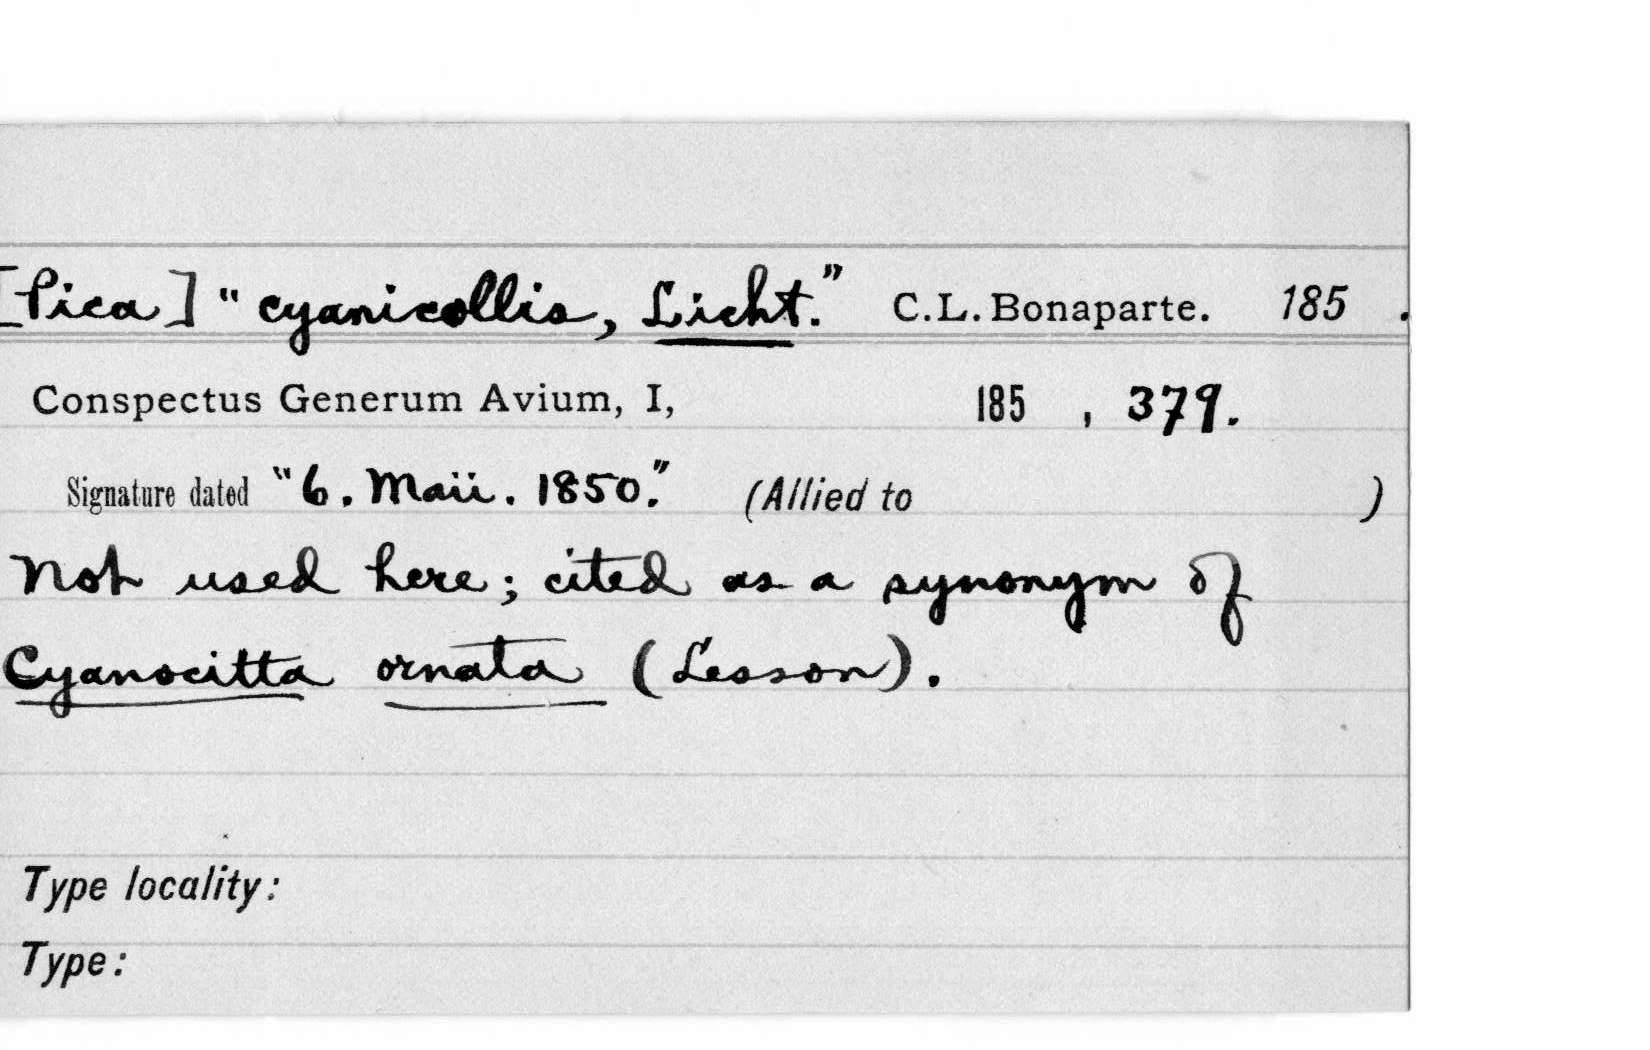 [Pica] "cyanicollis, Licht." C.L. Bonaparte. 185 .
Conspectus Generum Avium, I, 185 , 379.
Signature dated "6. Maii. 1850." (Allied to )
Not used here; cited as a synonym of
Cyanocitta ornata (Lesson).
Type locality:
Type: